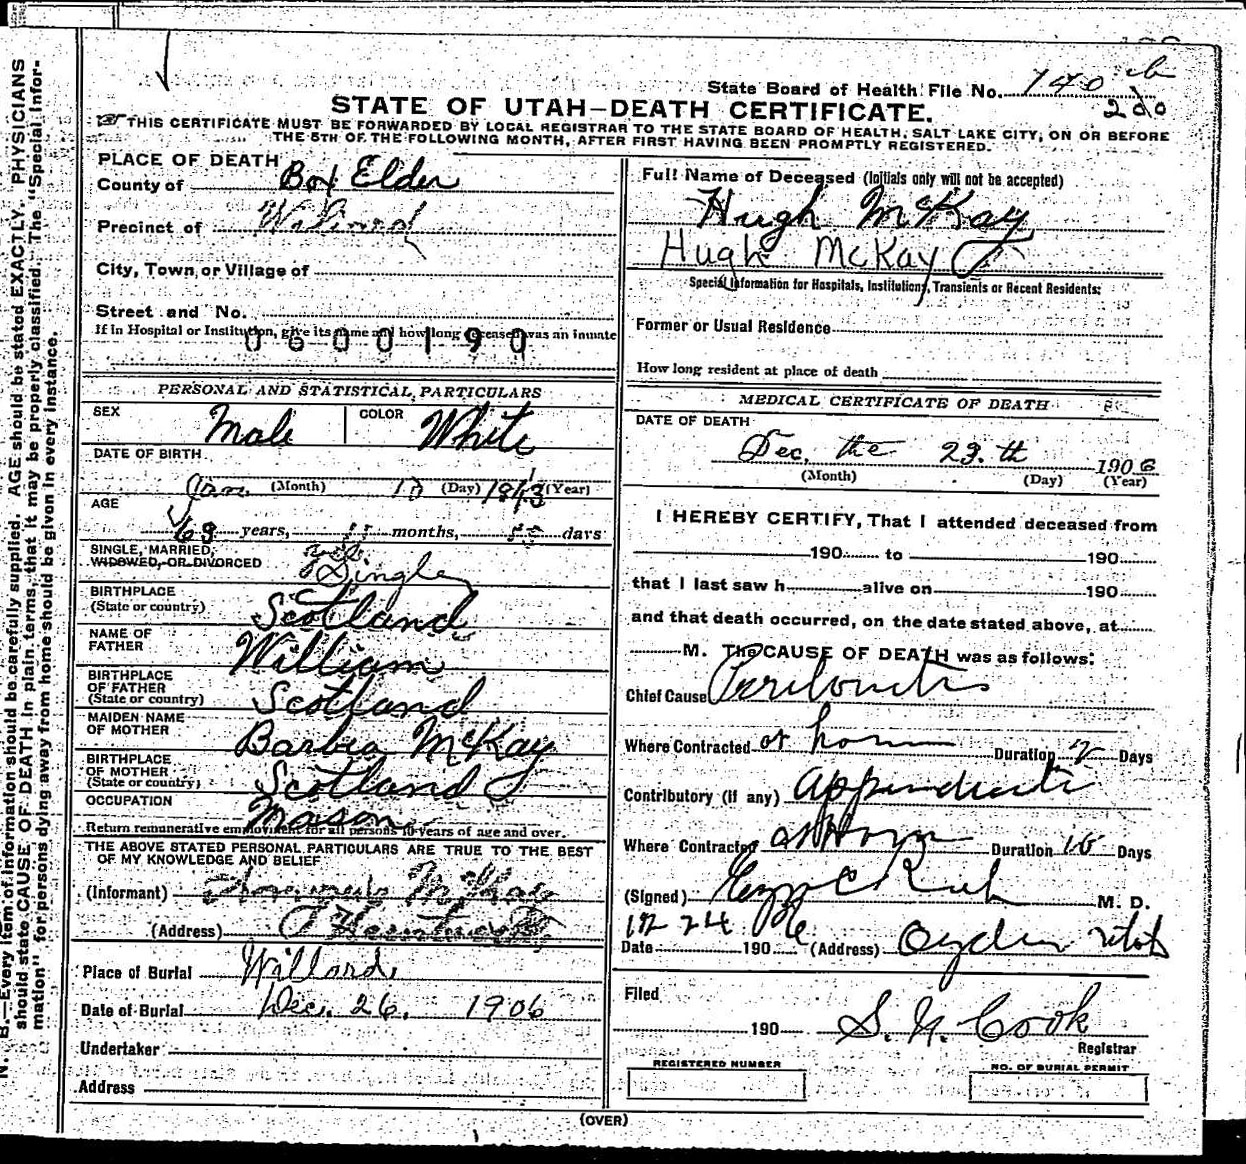 State Board of Health File No. 140
STATE OF UTAH—DEATH CERTIFICATE.
THIS CERTIFICATE MUST BE FORWARDED BY LOCAL REGISTRAR TO THE STATE BOARD OF HEALTH, SALT LAKE CITY, ON OR BEFORE
THE 5TH OF THE FOLLOWING MONTH, AFTER FIRST HAVING BEEN PROMPTLY REGISTERED.
N. B.—Every item of information should be carefully supplied. AGE should be stated EXACTLY. PHYSICIANS
should state CAUSE OF DEATH in plain terms, that it may be properly classified. The "Special Infor-
mation" for persons dying away from home should be given in every instance.
PLACE OF DEATH
County of Box Elder
Precinct of Willard
City, Town or Village of
Street and No.
If in Hospital or Institution, give its name and how long deceased was an inmate
0600190
PERSONAL AND STATISTICAL PARTICULARS
SEX Male COLOR White
DATE OF BIRTH
Jan. (Month) (Day) 1843 (Year)
AGE
63 years, 11 months, days
SINGLE, MARRIED,
WIDOWED, OR DIVORCED Single
BIRTHPLACE
(State or country) Scotland
NAME OF
FATHER William
BIRTHPLACE
OF FATHER
(State or country) Scotland
MAIDEN NAME
OF MOTHER Barbra McKay
BIRTHPLACE
OF MOTHER
(State or country) Scotland
OCCUPATION Mason
Return remunerative employment for all persons 10 years of age and over.
THE ABOVE STATED PERSONAL PARTICULARS ARE TRUE TO THE BEST
OF MY KNOWLEDGE AND BELIEF
(Informant) McKay
(Address)
Place of Burial Willard
Date of Burial Dec. 26. 1906
Undertaker
Address
Full Name of Deceased (Initials only will not be accepted)
Hugh McKay
Hugh McKay
Special Information for Hospitals, Institutions, Transients or Recent Residents:
Former or Usual Residence
How long resident at place of death
MEDICAL CERTIFICATE OF DEATH
DATE OF DEATH
Dec. the 23. th 1906
(Month) (Day) (Year)
I HEREBY CERTIFY, That I attended deceased from
190 to 190
that I last saw h alive on 190
and that death occurred, on the date stated above, at
M. The CAUSE OF DEATH was as follows:
Chief Cause Peritonitis
Where Contracted at home Duration 2 Days
Contributory (if any) Appendicitis
Where Contracted at Home Duration 10 Days
(Signed) M. D.
Date 12 24 1906 (Address) Ogden Utah
Filed
190 S. N. Cook
Registrar
REGISTERED NUMBER
NO. OF BURIAL PERMIT
(OVER)